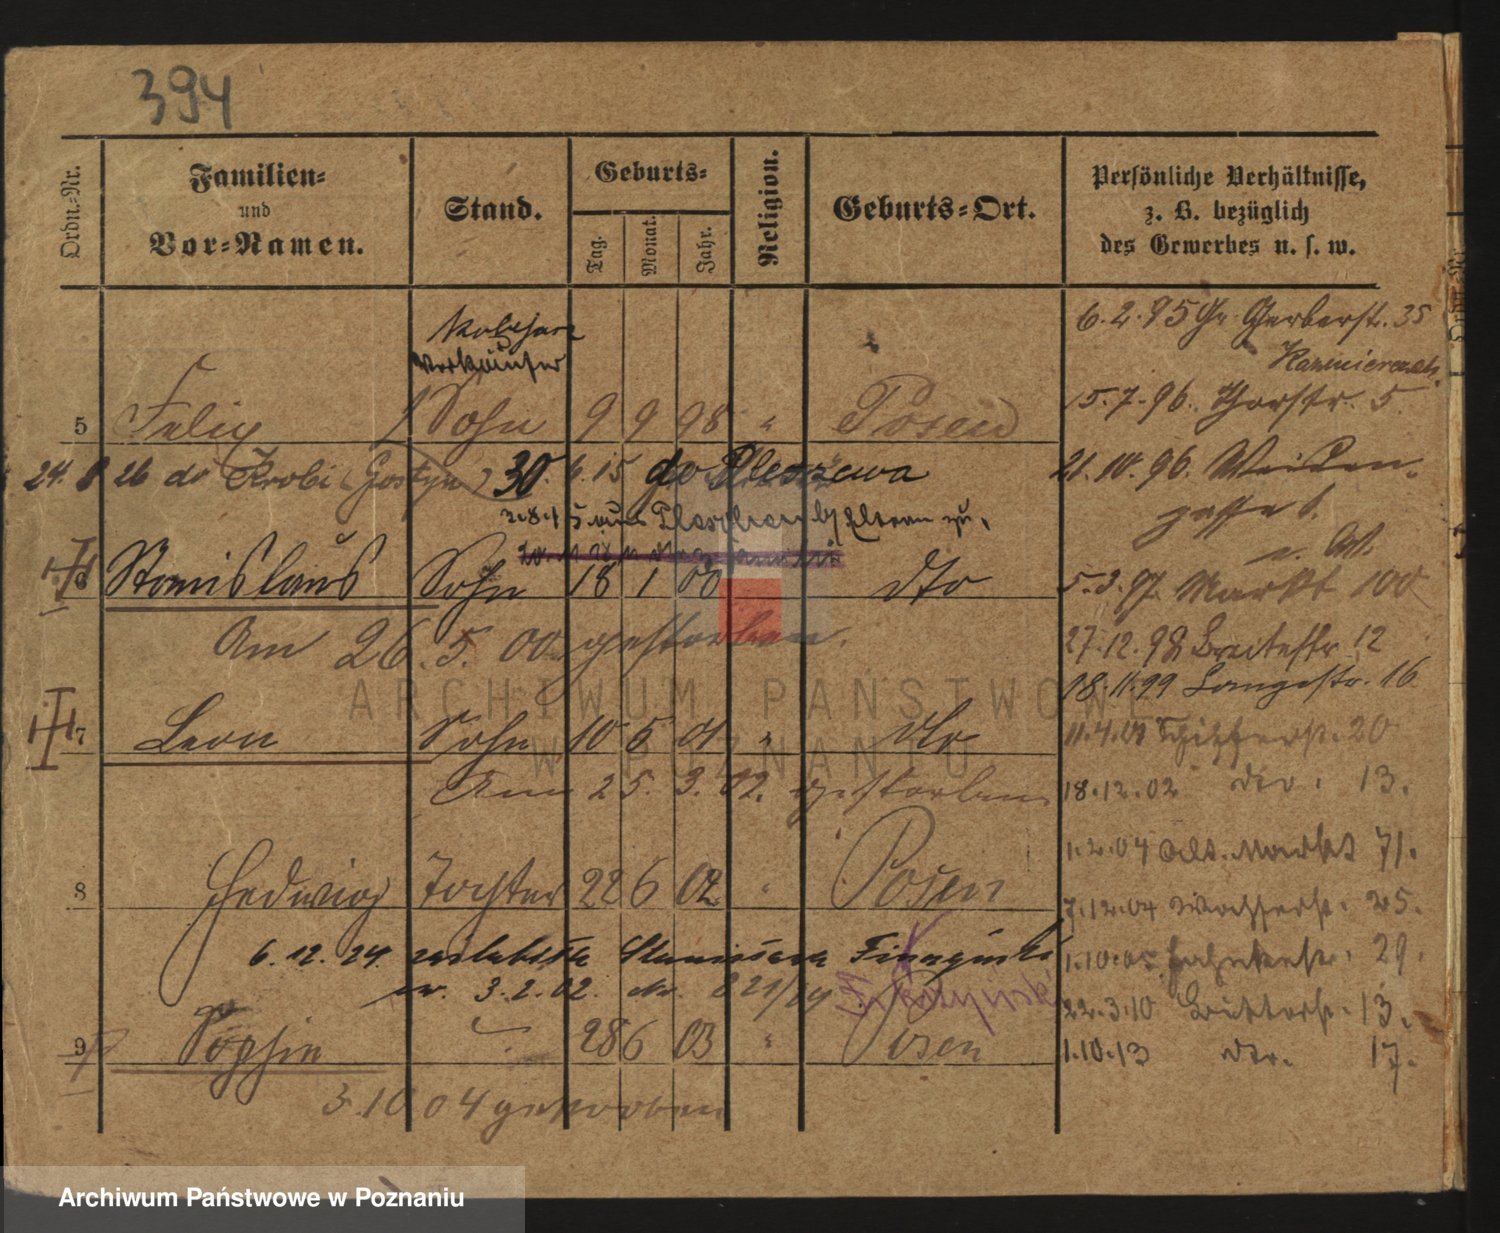 394
Ordn.-Nr.
Familien-
und
Vor-Namen.
Stand.
Geburts-
Tag.
Monat.
Jahr.
Religion.
Geburts-Ort.
Persönliche Verhältnisse,
z. B. bezüglich
des Gewerbes u. s. w.
Verkäufer
5 Felix Sohn 9 9 98 " Posen
24. 8 26 do Krobi (Gostyn) 30. 6. 15 do Pleszewa
Eltern zu.
6 Stanislaus Sohn 18 1 00 dto
Am 26. 5. 00 gestorben.
7 Leon Sohn 10 5 01 " dto
Am 25. 3. 02. gestorben
8 Hedwig Tochter 22 6 02 " Posen
6. 12. 24. zaślubiła Stanisława
ur. 3. 2. 02. Nr. 821/24
9 Sophie " 28 6 03 " Posen
3. 10 04 gestorben
6. 2. 95 Gr. Gerberstr. 35
15. 7. 96. Thorstr. 5
21. 10. 96. Weiden-
gasse 1.
5. 3. 97. Markt 100
27. 12. 98 Breitestr. 12
18. 11. 99 Langestr. 16
11. 4. 01 Schifferstr. 20
18. 12. 02 dto. 13.
1. 2. 04 Alt. Markt 71.
7. 12. 04 Wasserstr. 25.
1. 10. 05 29.
22. 3. 10 Büttelstr. 13.
1. 10. 13 dto. 17.
ARCHIWUM PAŃSTWOWE
W POZNANIU
Archiwum Państwowe w Poznaniu